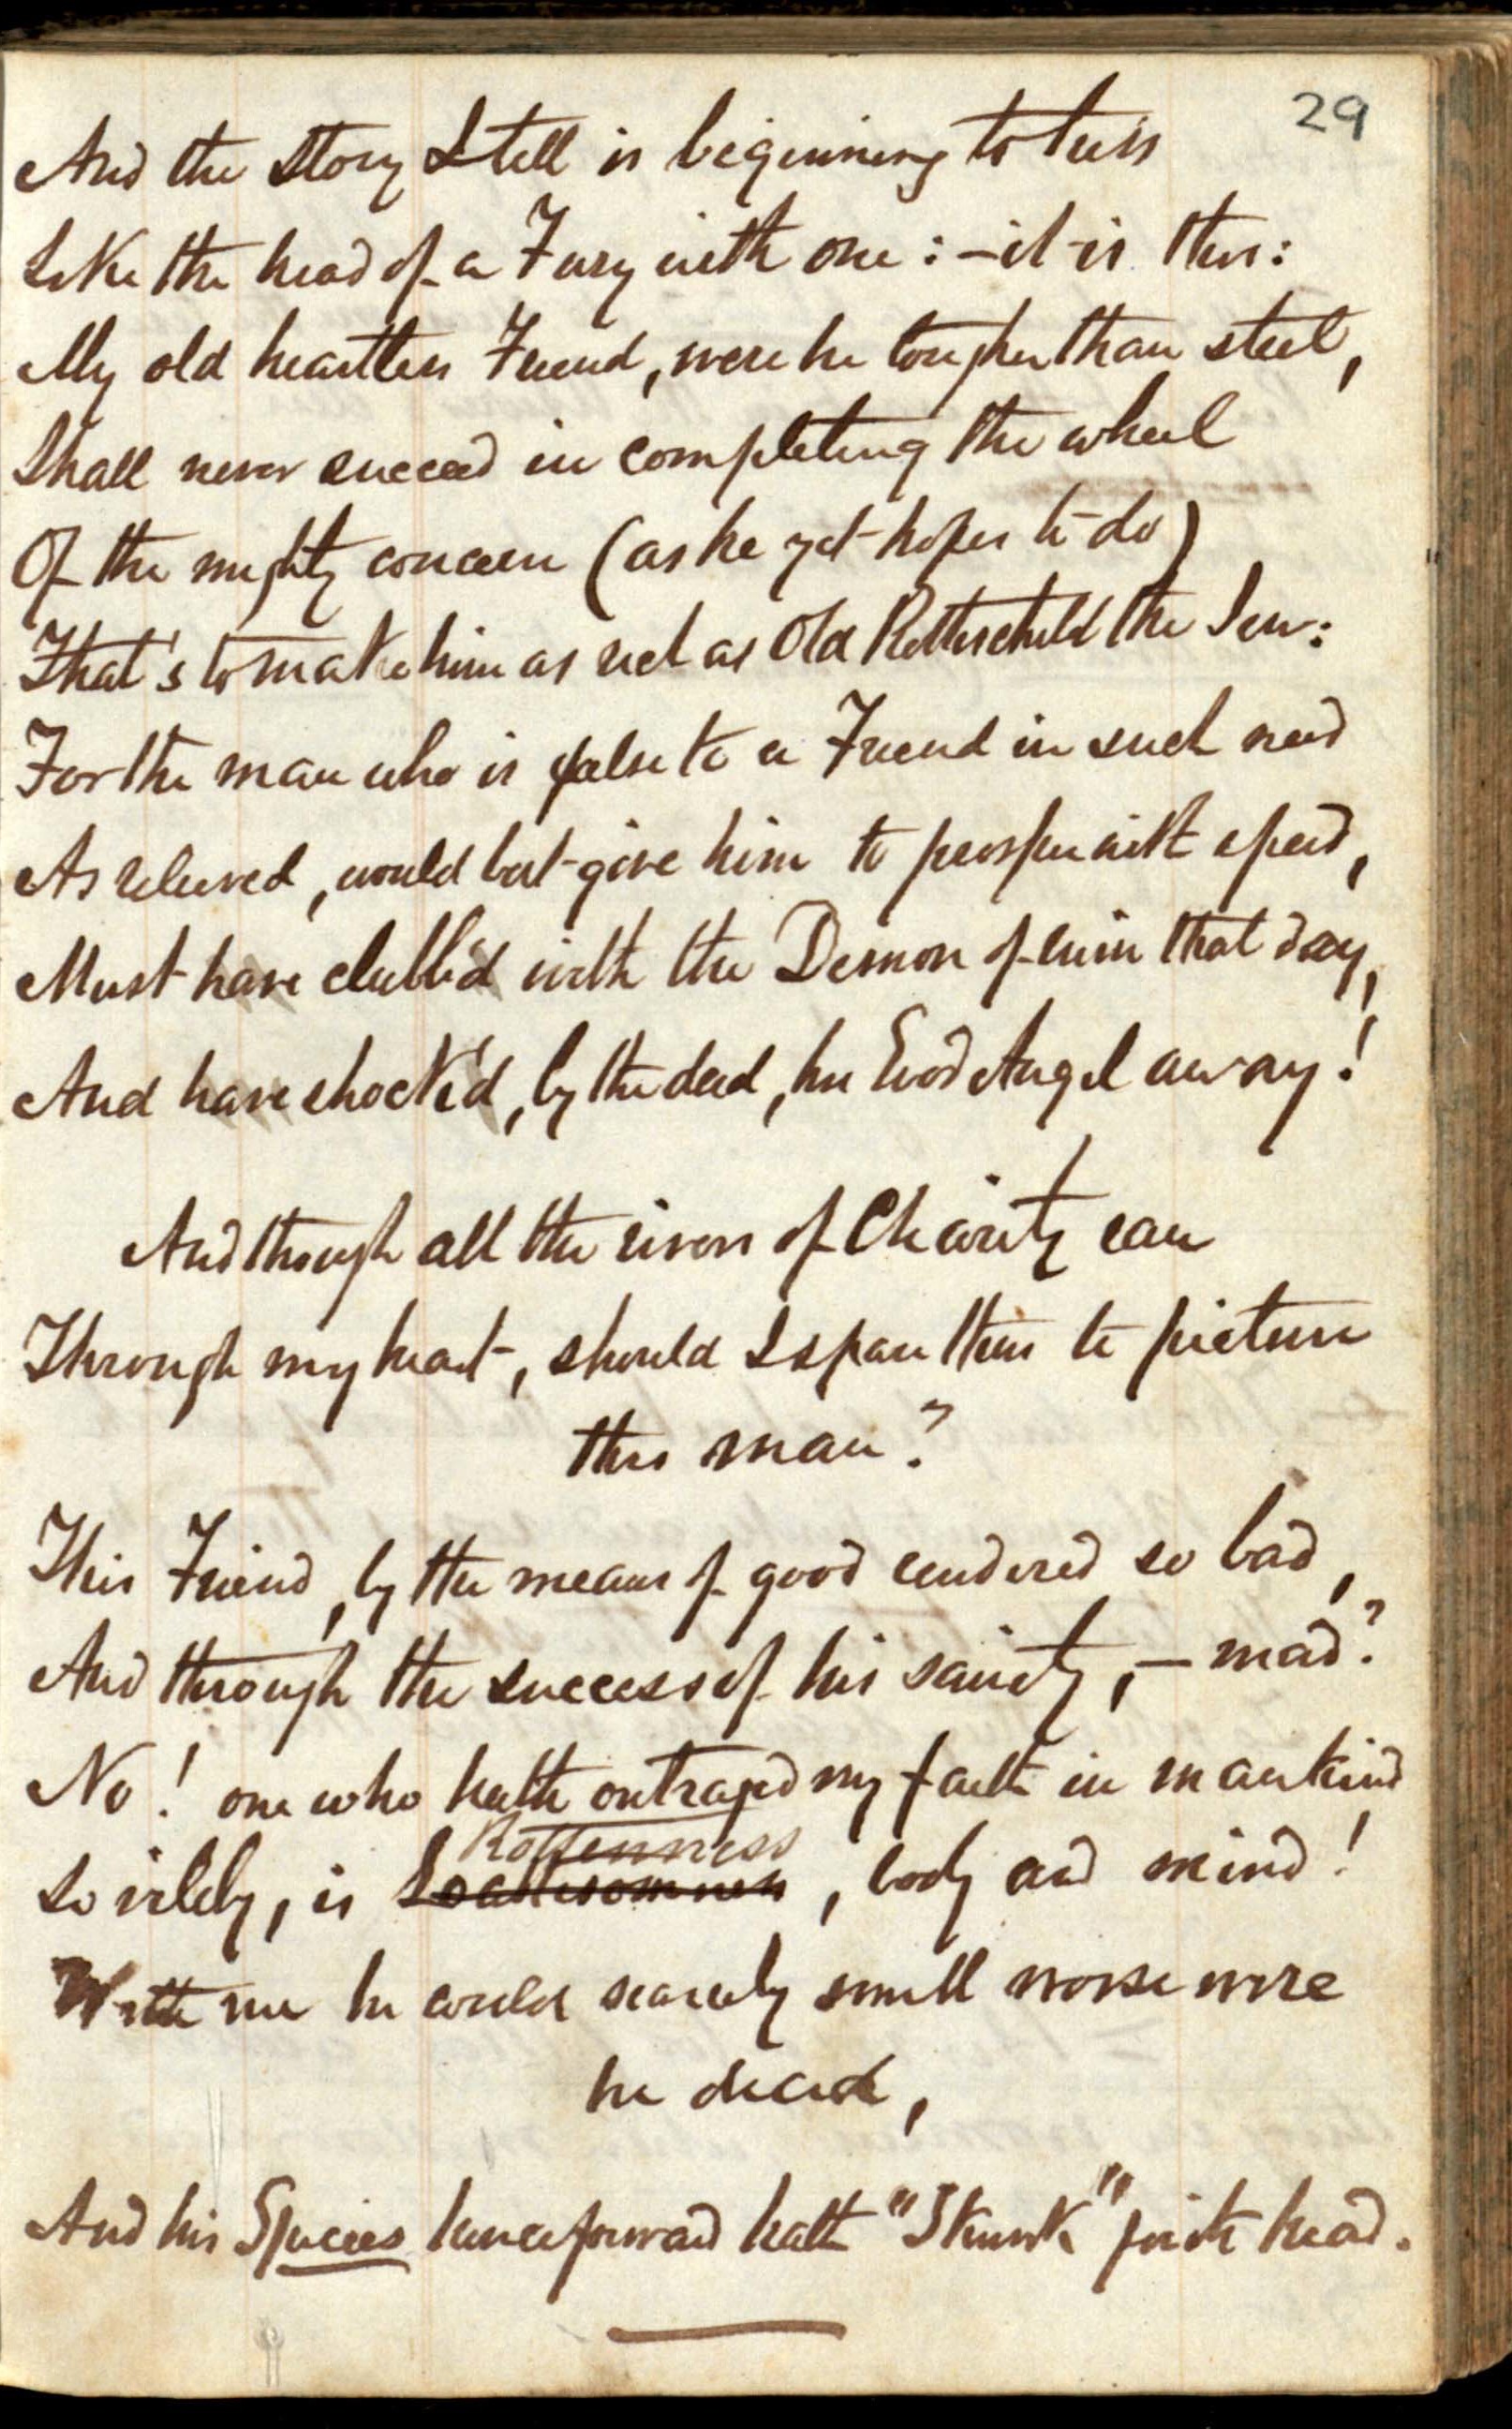 29
And the story I tell is beginning to hiss
Like the head of a Fury with one : – it is this:
My old heartless Friend, were he tougher than steel,
Shall never succeed in completing the wheel
Of the mighty concern (as he yet hopes to do)
That's to make him as rich as Old Rothschild the Jew:
For the man who is false to a Friend in such need
As relieved, would but give him to prosper with speed,
Must have clubb'd with the Demon of ruin that day,
And have shock'd, by the deed, his Good Angel away!
And though all the rivers of Charity ran
Through my heart, should I spare them to picture
this man?
This Friend, by the means of good rendered so bad,
And through the success of his sanity, – mad?
No! one who hath outraged my faith in mankind
Rottenness
So vilely, is Loathsomness, body and mind!
With me he could scarcely smell worse were
he dead,
And his Species henceforward hath "Skunk" for its head.